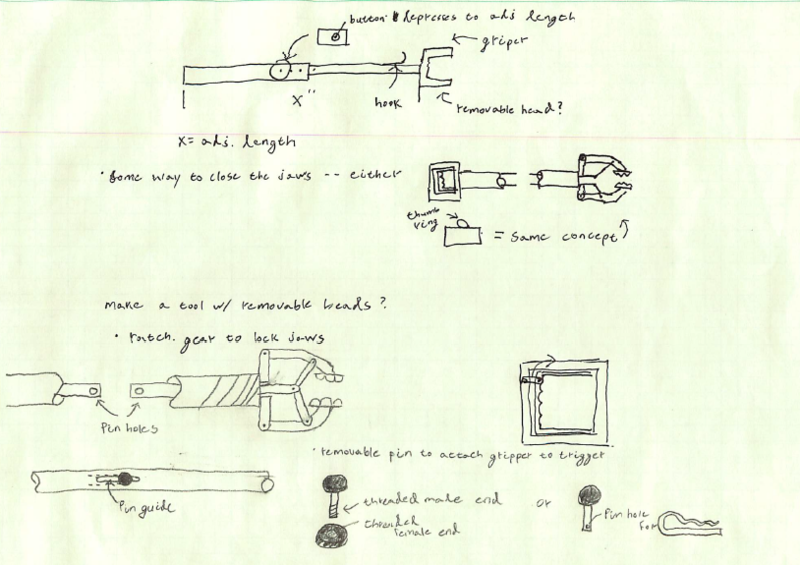 button depresses to adj length
griper
X"
hook
removable head?
X = adj. length
· Some way to close the jaws -- either
thumb
ring
= Same concept
make a tool w/ removable heads?
· ratch. gear to lock jaws
Pin holes
· removable pin to attach gripper to trigger
Pin guide
threaded male end
or
Pin hole
for
threaded
female end